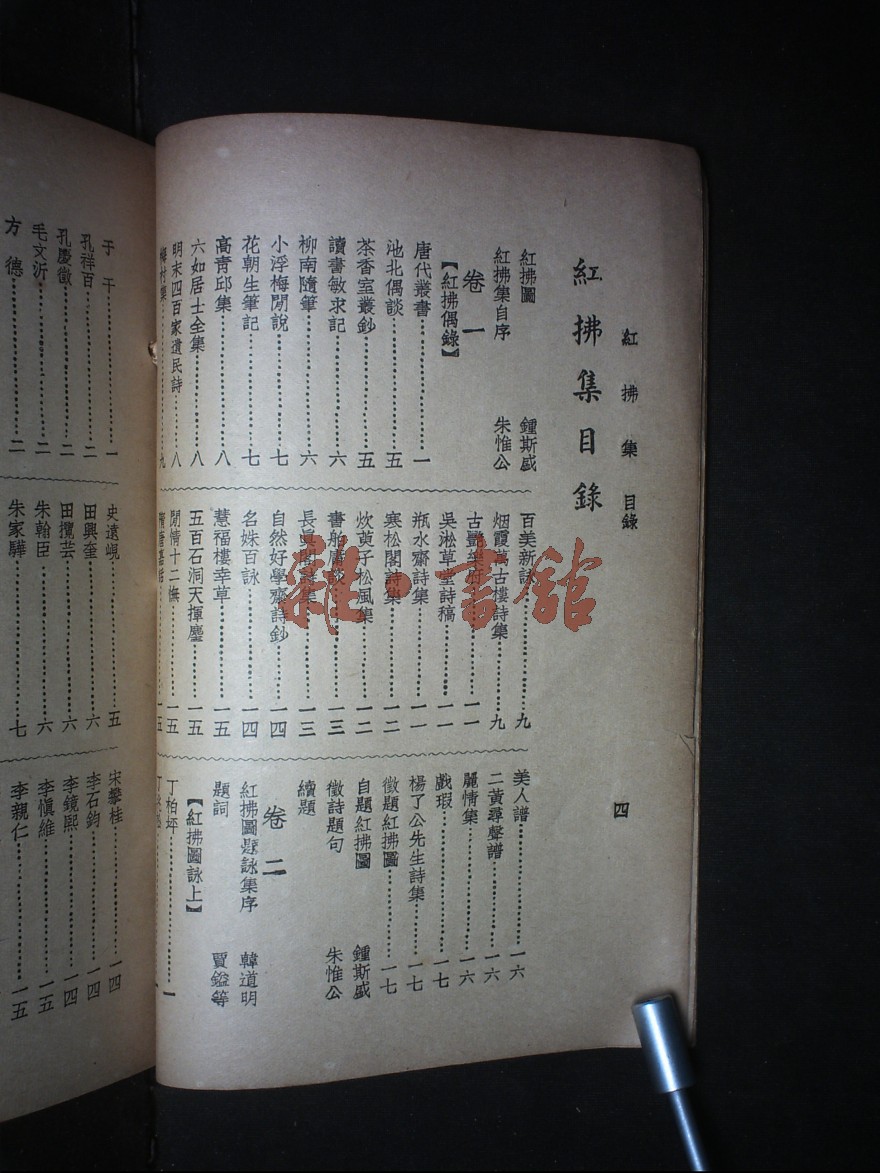 紅拂集 目錄
四
紅拂集目錄
紅拂圖 鍾斯盛
紅拂集自序 朱惟公
卷一
【紅拂偶錄】
唐代叢書⋯⋯一
池北偶談⋯⋯五
茶香室叢鈔⋯⋯五
讀書敏求記⋯⋯六
柳南隨筆⋯⋯六
小浮梅閒說⋯⋯七
花朝生筆記⋯⋯七
高青邱集⋯⋯八
六如居士全集⋯⋯八
明末四百家遺民詩⋯⋯八
村集⋯⋯九
百美新詠⋯⋯九
烟霞萬古樓詩集⋯⋯九
古豔樂府⋯⋯一一
吳淞草堂詩稿⋯⋯一一
瓶水齋詩集⋯⋯一一
寒松閣詩集⋯⋯一二
炊萸子松風集⋯⋯一二
書舶庸談⋯⋯一三
長眞閣詩集⋯⋯一三
自然好學齋詩鈔⋯⋯一四
名姝百詠⋯⋯一四
慧福樓幸草⋯⋯一五
五百石洞天揮麈⋯⋯一五
閒情十二憮⋯⋯一五
隋唐嘉話⋯⋯一五
美人譜⋯⋯一六
二黃尋聲譜⋯⋯一六
麗情集⋯⋯一六
戲瑕⋯⋯一七
楊了公先生詩集⋯⋯一七
徵題紅拂圖⋯⋯一七
自題紅拂圖 鍾斯盛
徵詩題句 朱惟公
續題
卷二
紅拂圖題詠集序 韓道明
題詞 賈鎰等
【紅拂圖詠上】
丁柏坪⋯⋯一
于干⋯⋯一
孔祥百⋯⋯二
孔慶徵⋯⋯二
毛文沂⋯⋯二
方德⋯⋯二
史遠峴⋯⋯五
田興奎⋯⋯六
田攬芸⋯⋯六
朱翰臣⋯⋯六
朱家驊⋯⋯七
宋攀桂⋯⋯一四
李石鈞⋯⋯一四
李鏡熙⋯⋯一四
李愼維⋯⋯一五
李親仁⋯⋯一五
雜·書館